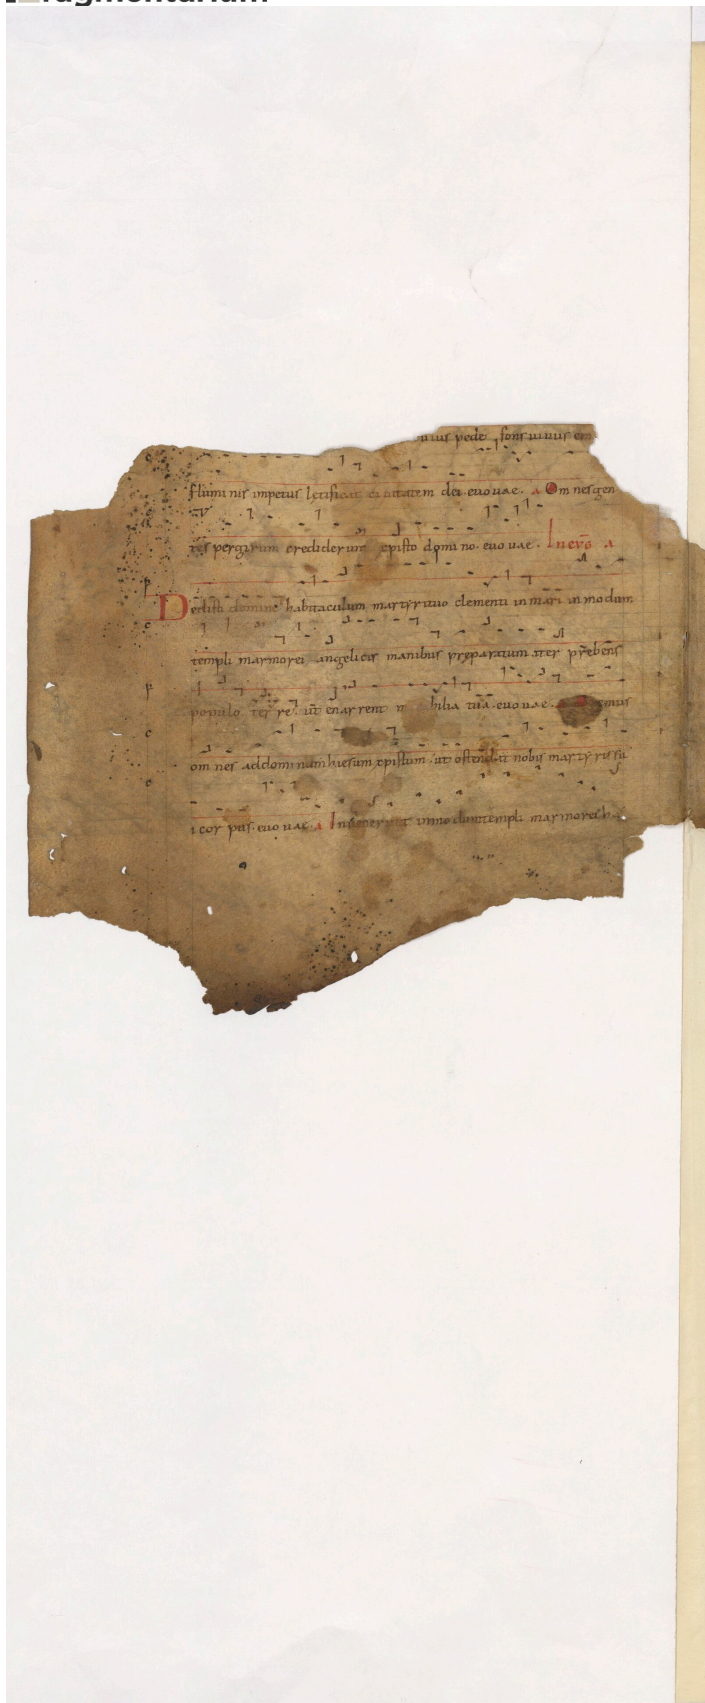 pede fons uiuus
fluminis impetus letificat ciuitatem dei. euouae. a Omnes gen
tes per girum crediderunt xpisto domino. euouae. In euḡ a
Dedisti domine habitaculum martyri tuo clementi in mari in modum
templi marmorei angelicis manibus preparatum iter prebens
populo terre. ut enarrent bilia tua. euouae.
omnes ad dominum hiesum xpistum. ut ostendat nobis martyris su
i corpus. euouae. a Inuenerunt in modum templi marmorei